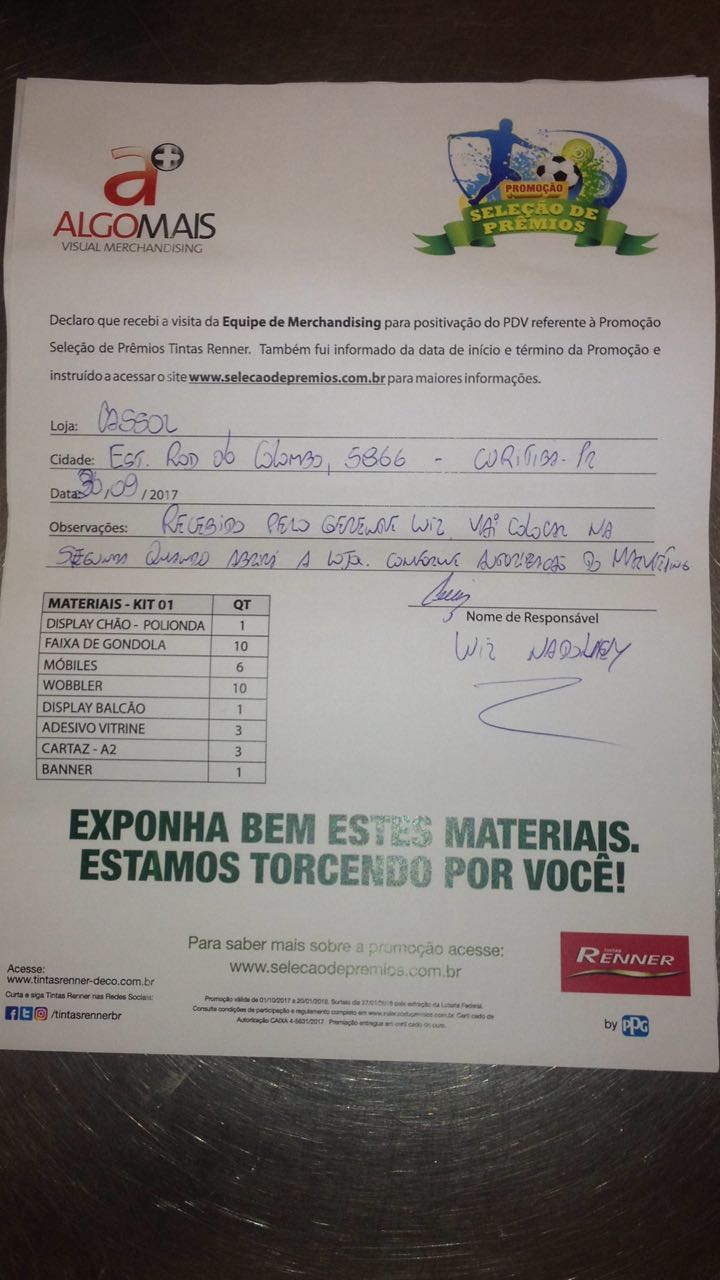 a+
ALGOMAIS
VISUAL MERCHANDISING
PROMOÇÃO
SELEÇÃO DE
PRÊMIOS
Declaro que recebi a visita da Equipe de Merchandising para positivação do PDV referente à Promoção
Seleção de Prêmios Tintas Renner. Também fui informado da data de início e término da Promoção e
instruído a acessar o site www.selecaodepremios.com.br para maiores informações.
Loja: CASSOL
Cidade: EST. ROD do COLOMBO, 5866 - CURITIBA-PR
Data: 30/09/2017
Observações: RECEBIDO PELO GERENTE WIZ. VAI COLOCAR NA
SEGUNDA QUANDO ABRIR A LOJA. CONFORME AUTORIZAÇÃO DO MARKETING
MATERIAIS - KIT 01 QT
DISPLAY CHÃO - POLIONDA 1
FAIXA DE GONDOLA 10
MÓBILES 6
WOBBLER 10
DISPLAY BALCÃO 1
ADESIVO VITRINE 3
CARTAZ - A2 3
BANNER 1
Nome de Responsável
EXPONHA BEM ESTES MATERIAIS.
ESTAMOS TORCENDO POR VOCÊ!
Para saber mais sobre a promoção acesse:
www.selecaodepremios.com.br
tintas
RENNER
by PPG
Acesse:
www.tintasrenner-deco.com.br
Curta e siga Tintas Renner nas Redes Sociais:
/tintasrennerbr
Promoção válida de 01/10/2017 a 20/01/2018. Sorteio dia 27/01/2018 pela extração da Loteria Federal.
Consulte condições de participação e regulamento completo em www.selecaodepremios.com.br. Certificado de
Autorização CAIXA 4-5631/2017. Premiação entregue em certificado de ouro.